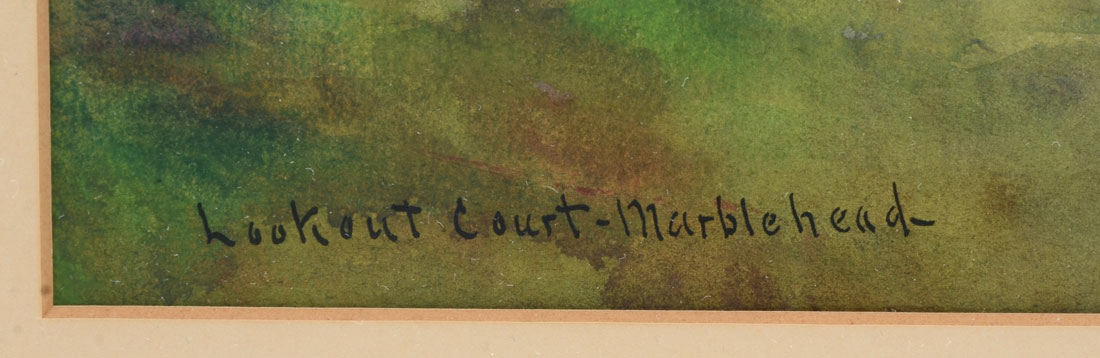 Lookout Court-Marblehead-